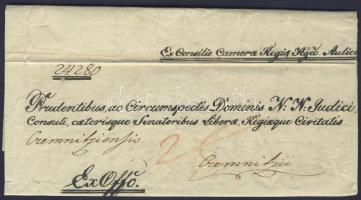 Ex Consilio Cameræ Regiæ Hgco. Aulicæ
24280
Prudentibus, ac Circumspectis Dominis N. N. Judici,
Consuli, cæterisque Senatoribus Liberæ, Regiæque Civitatis
Cremnitziensis.
Cremnitzii
Ex Offo.